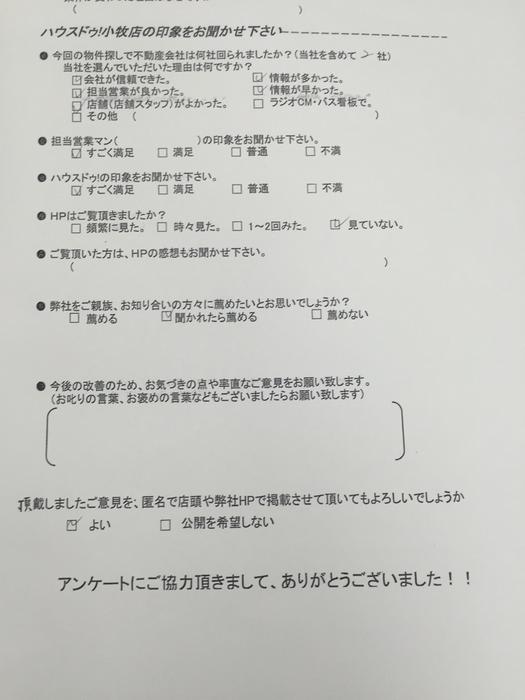 (　　　　　　　　　　)
ハウスドゥ!小牧店の印象をお聞かせ下さい
● 今回の物件探しで不動産会社は何社回られましたか?(当社を含めて 2 社)
当社を選んでいただいた理由は何ですか?
☑ 会社が信頼できた。 ☑ 情報が多かった。
☑ 担当営業が良かった。 ☑ 情報が早かった。
☑ 店舗(店舗スタッフ)がよかった。 □ ラジオCM・バス看板で。
□ その他 (　　　　　　　　　　)
● 担当営業マン(　　　　　　)の印象をお聞かせ下さい。
☑ すごく満足 □ 満足 □ 普通 □ 不満
● ハウスドゥ!の印象をお聞かせ下さい。
☑ すごく満足 □ 満足 □ 普通 □ 不満
● HPはご覧頂きましたか?
□ 頻繁に見た。 □ 時々見た。 □ 1~2回みた。 ☑ 見ていない。
● ご覧頂いた方は、HPの感想もお聞かせ下さい。
(　　　　　　　　　　)
● 弊社をご親族、お知り合いの方々に薦めたいとお思いでしょうか?
□ 薦める ☑ 聞かれたら薦める □ 薦めない
● 今後の改善のため、お気づきの点や率直なご意見をお願い致します。
(お叱りの言葉、お褒めの言葉などもございましたらお願い致します)
頂戴しましたご意見を、匿名で店頭や弊社HPで掲載させて頂いてもよろしいでしょうか
☑ よい □ 公開を希望しない
アンケートにご協力頂きまして、ありがとうございました!!